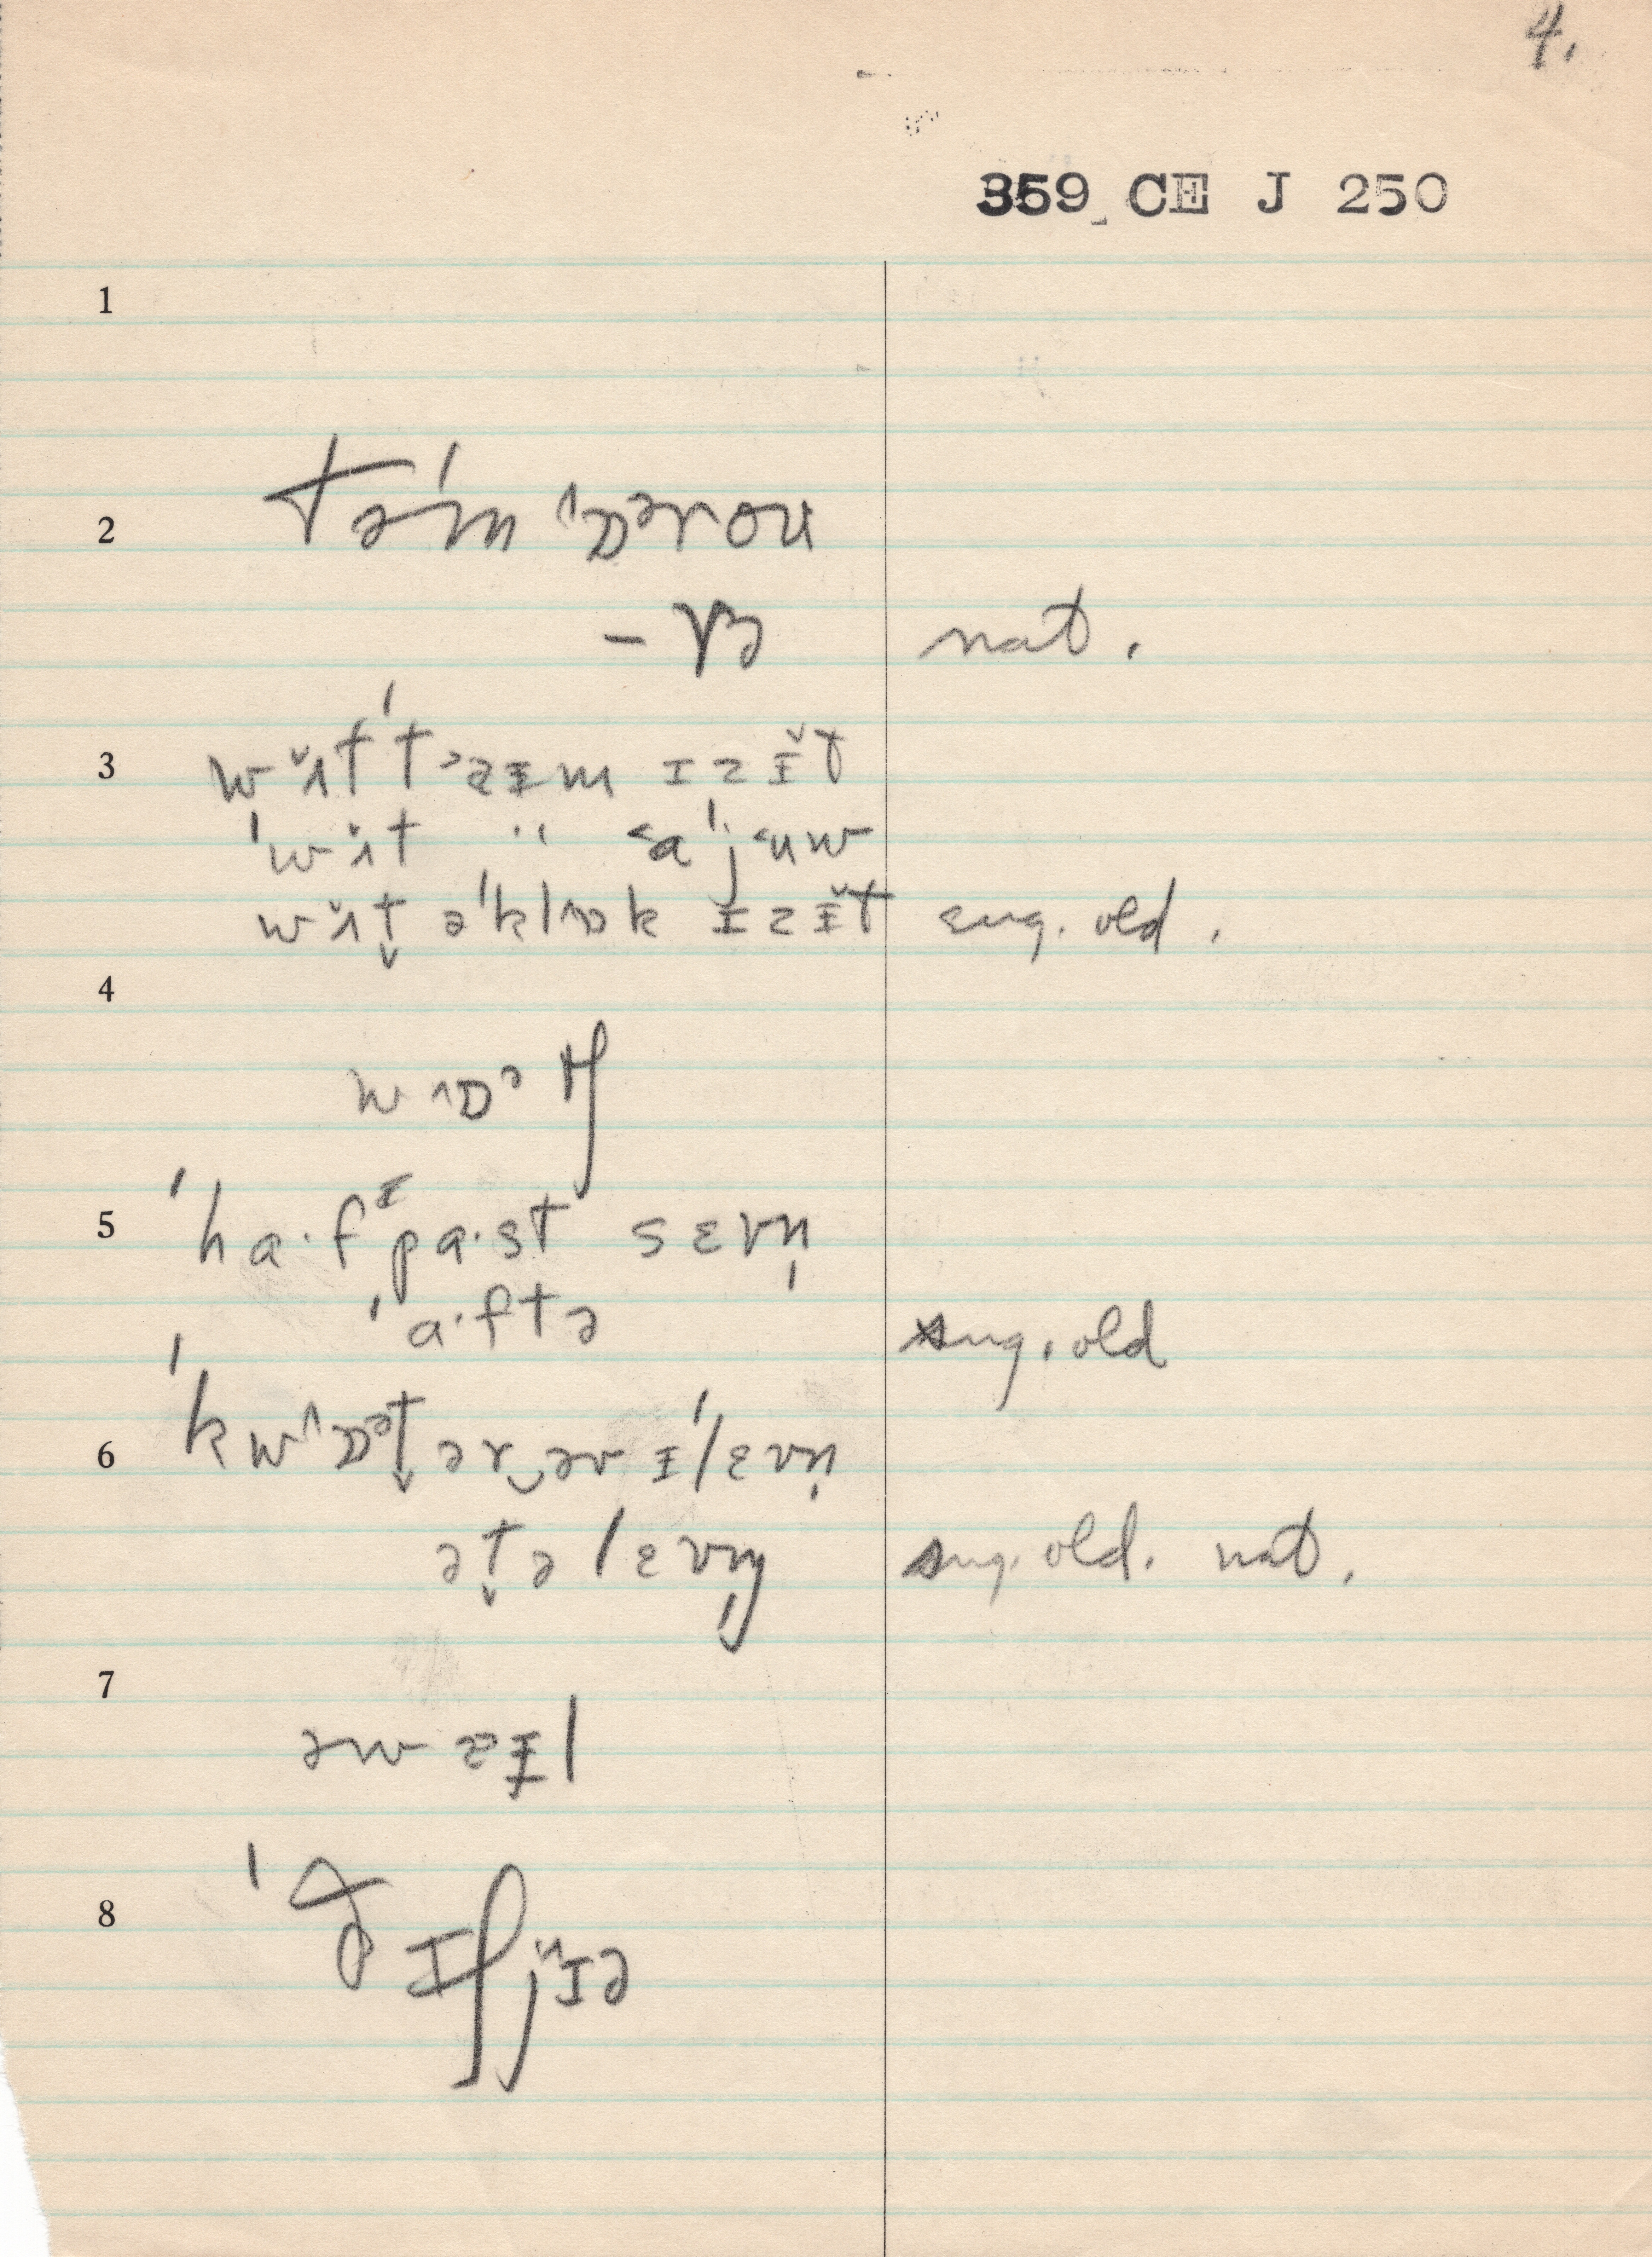 4.
359 CE J 250
1
2 təˈmɒᵊroʊ
- və nat.
3 wʌ̆t ˈtᵊaɪm ɪz ɪ̆t
ˈwʌ̆t " ᵋaˈjᵋuw
wʌ̆t̬ əˈklɒk ɪz ɪ̆t sug. old.
4
wɒᵊtʃ
5 ˈha·fᶦpa·st sɛvn̩
ˈa·ftə sug. old
6 ˈkwɒᵊt̬ər‿əv ɪˈlɛvn̩
ət̬ə lɛvm̩ sug. old. nat.
7
əw ɪl
8 ˈðɪʃjɪə